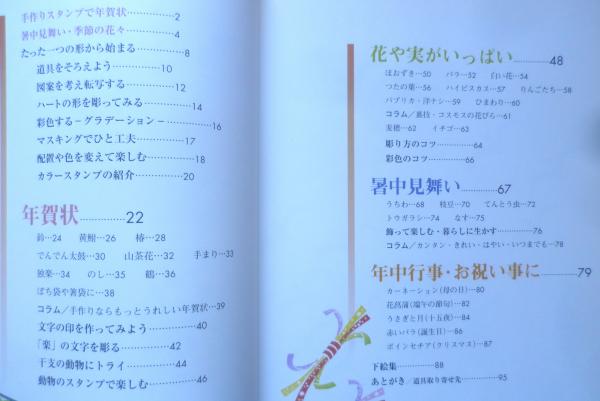 手作りスタンプで年賀状……………2
暑中見舞い・季節の花々……………4
たった一つの形から始まる……………8
道具をそろえよう……………10
図案を考え転写する……………12
ハートの形を彫ってみる……………14
彩色する－グラデーション－……………16
マスキングでひと工夫……………17
配置や色を変えて楽しむ……………18
カラースタンプの紹介……………20
年賀状……………22
鈴…24 黄鮒…26 椿…28
でんでん太鼓…30 山茶花…32 手まり…33
独楽…34 のし…35 鶴…36
ぽち袋や箸袋に…38
コラム／手作りならもっとうれしい年賀状…39
文字の印を作ってみよう……………40
「楽」の文字を彫る……………42
干支の動物にトライ……………44
動物のスタンプで楽しむ……………46
花や実がいっぱい……………48
ほおずき…50 バラ…52 白い花…54
つたの葉…56 ハイビスカス…57 りんごたち…58
パプリカ・洋ナシ…59 ひまわり…60
コラム／裏技・コスモスの花びら…61
麦穂…62 イチゴ…63
彫り方のコツ……………64
彩色のコツ……………66
暑中見舞い……………67
うちわ…68 枝豆…70 てんとう虫…72
トウガラシ…74 なす…75
飾って楽しむ・暮らしに生かす……………76
コラム／カンタン・きれい・はやい・いつまでも…78
年中行事・お祝い事に……………79
カーネーション（母の日）…80
花菖蒲（端午の節句）…82
うさぎと月（十五夜）…84
赤いバラ（誕生日）…86
ポインセチア（クリスマス）…87
下絵集……………88
あとがき／道具取り寄せ先……………95